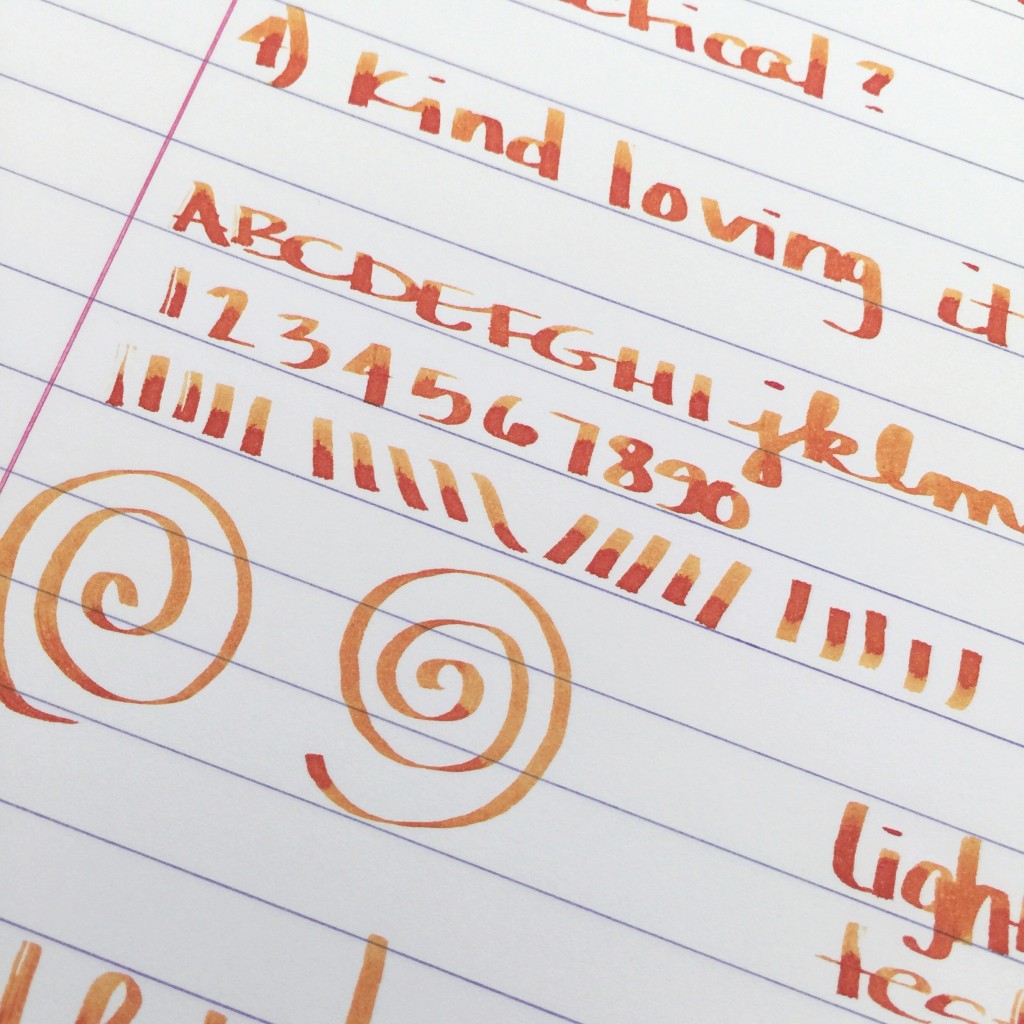 1) Kind loving it
ABCDEFGHIjklm
1234567890
light